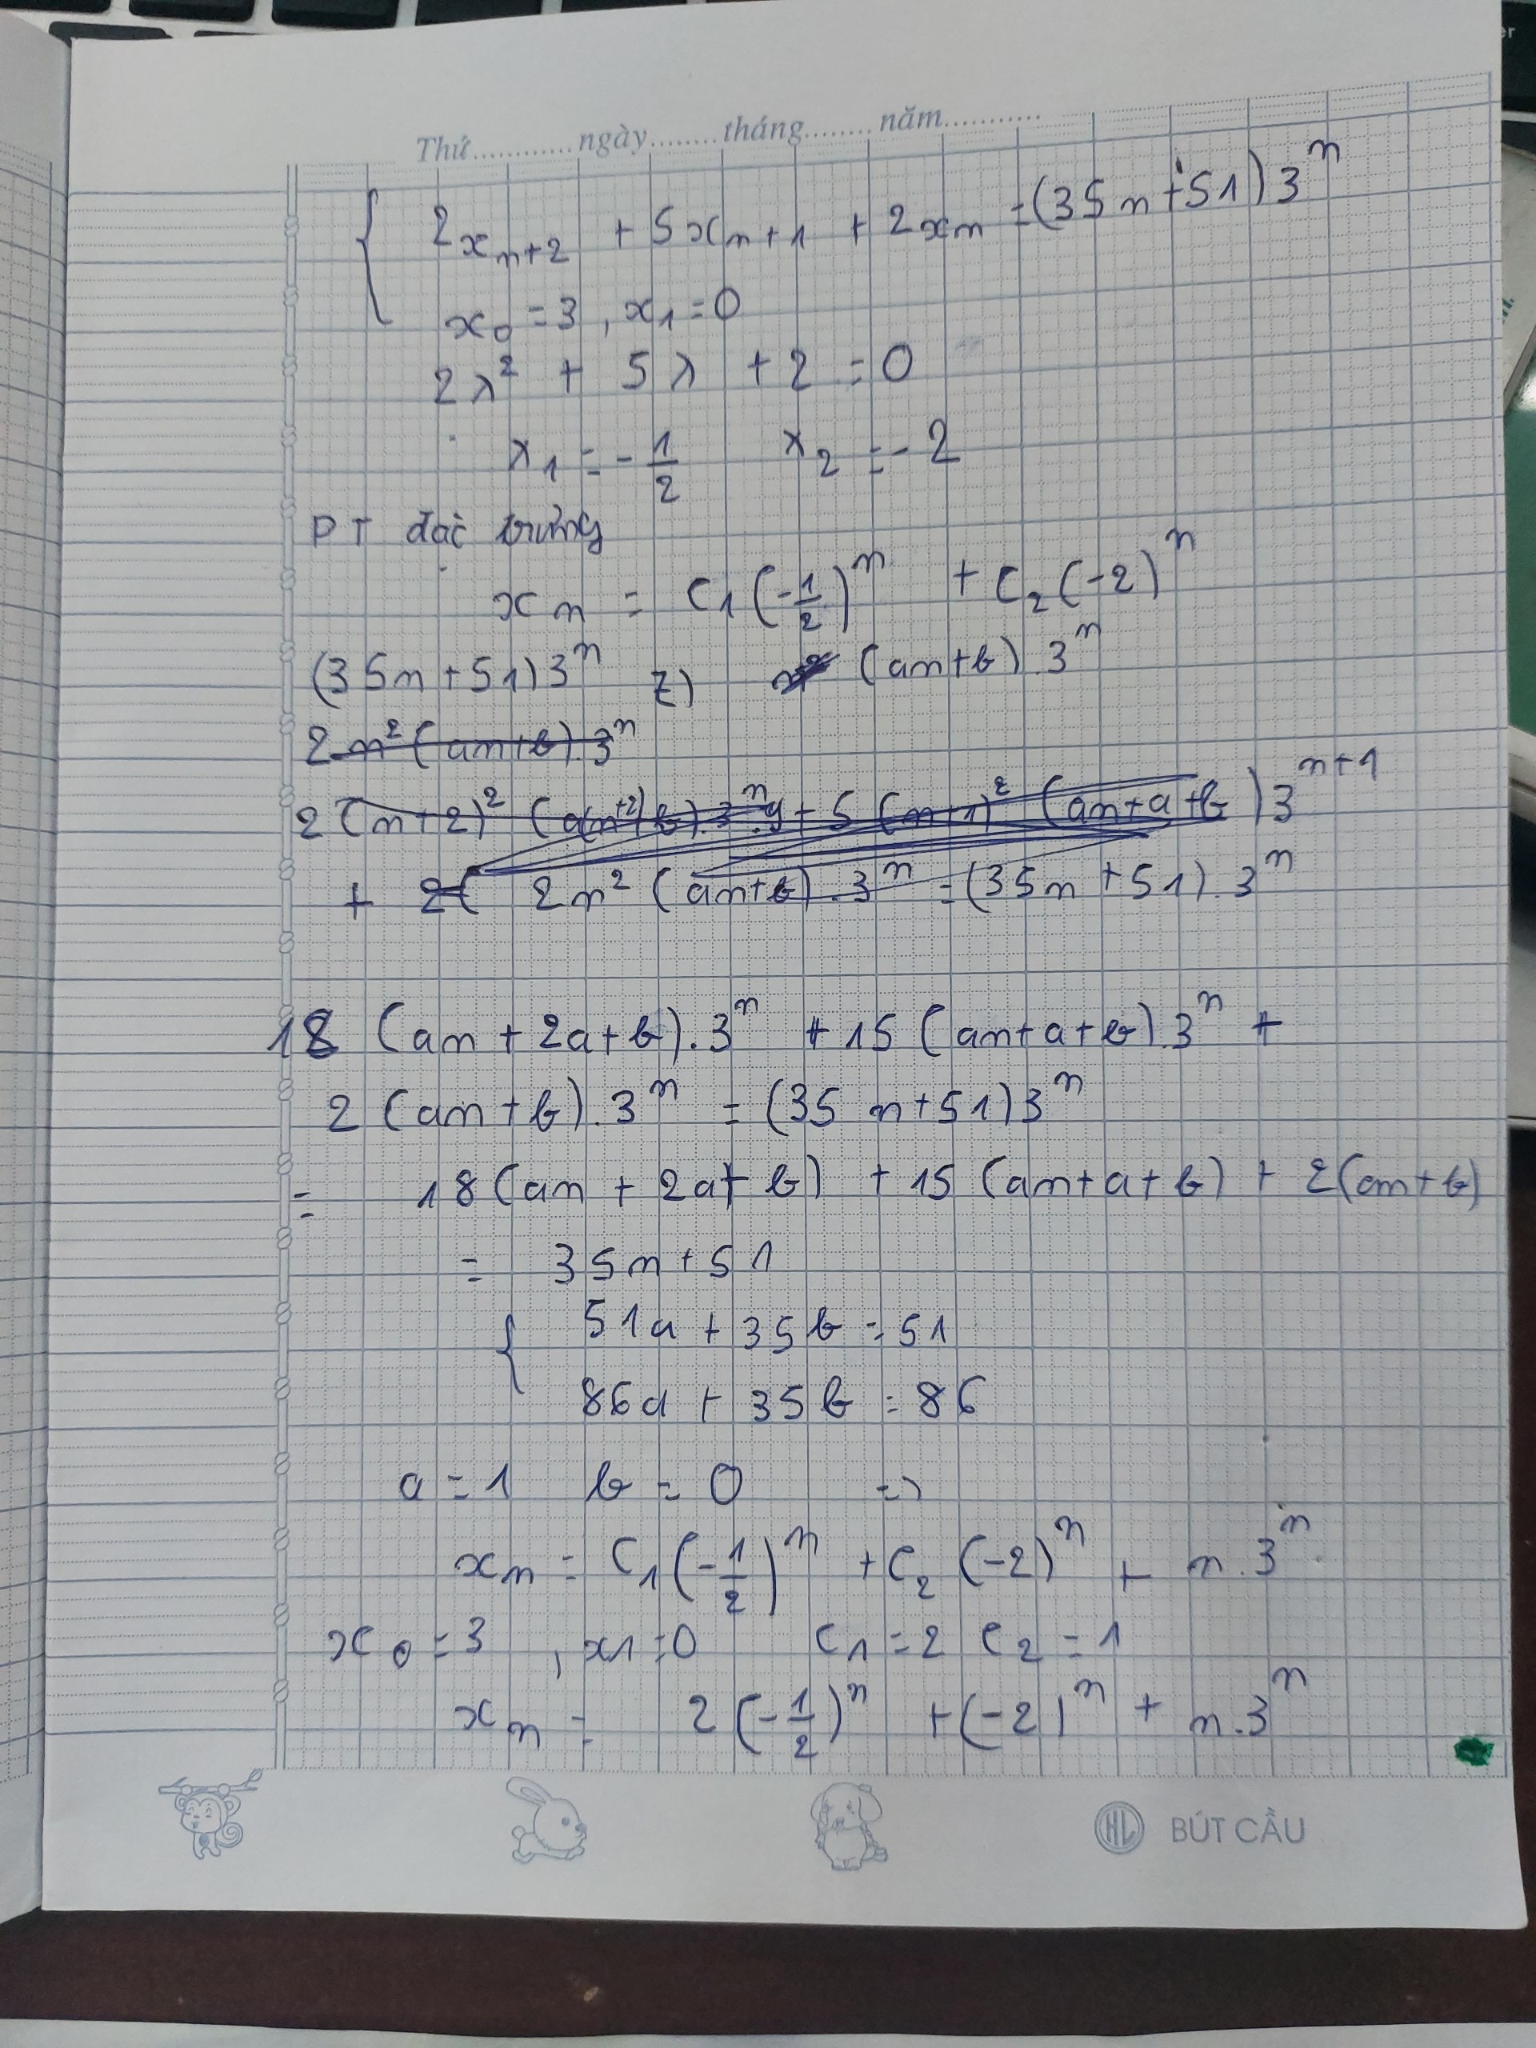 Thứ............ngày........tháng........năm...........
2x_{n+2} + 5x_{n+1} + 2x_n = (35n+51)3^n
x_0 = 3, x_1 = 0
2λ^2 + 5λ + 2 = 0
λ_1 = -\frac{1}{2} λ_2 = -2
PT đặc trưng
x_n = C_1(-\frac{1}{2})^n + C_2(-2)^n
(35n+51)3^n (an+b).3^n
2n^2(an+b).3^n
2(n+2)^2(a(n+2)+b).3^n.9+5(n+1)^2(an+a+b)3^{n+1}
+ 2( 2n^2(an+b).3^n = (35n+51).3^n
18(an+2a+b).3^n + 15(an+a+b).3^n +
2(an+b).3^n = (35n+51)3^n
= 18(an+2a+b) + 15(an+a+b) + 2(an+b)
= 35n+51
51a + 35b = 51
86a + 35b = 86
a = 1 b = 0 =>
x_n = C_1(-\frac{1}{2})^n + C_2(-2)^n + n.3^n
x_0 = 3, x_1 = 0 C_1 = 2 C_2 = 1
x_n = 2(-\frac{1}{2})^n + (-2)^n + n.3^n
HL BÚT CẦU